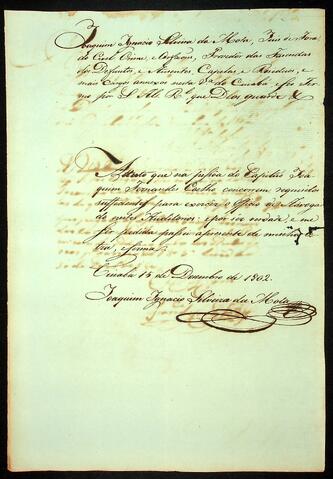 Joaquim Ignacio Silveira da Mota, Juiz de Fora
do Civel Crime, e Orfaons, Provedor das Fazendas
dos Defuntos, e Auzentes, Capelas, e Reziduos, e
mais Cargos annexos nesta V.ª do Cuiabá, e seo Termo
por S. A. R. que Deos guarde &
Attesto que na pessoa do Capitão Joa
quim Fernandes Coelho concorrem requizitos
sufficientes para exercer o Officio de
e por ser verdade e me
ser pedida passei a prezente de minha le
tra, e firma.
Cuiabá 15 de Dezembro de 1802.
Joaquim Ignacio Silveira da Mota